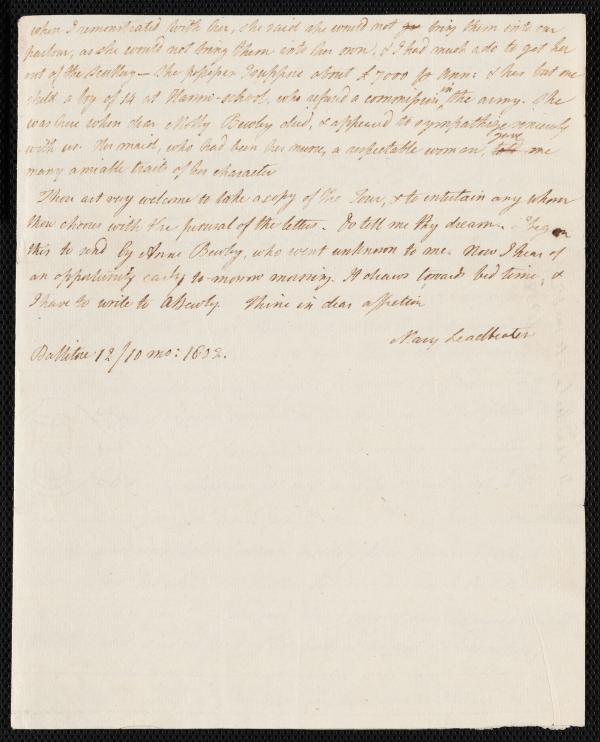 when I remonstrated with her, she said she would not go bring them into our
parlour, as she would not bring them into her own, & I had much ado to get her
out of the scullery — She possesses I suppose about £7000 pr Ann: & has but one
child a boy of 14 at Harrow-school, who refused a commission in the army. She
was here when dear Molly Bewley died, & appeared to sympathize sincerely
with us. Her maid, who had been her nurse, a respectable woman, told gave me
many amiable traits of her character
Thou art very welcome to take a copy of the Tour, & to entertain any whom
thou chooses with the perusal of the letters. Do tell me thy dream. I began
this to send by Anne Bewley, who went unknown to me. Now I hear of
an opportunity early to-morrow morning. It draws towards bed time, &
I have to write to ABewly. Thine in dear affection
Mary Leadbeater
Ballitore 12/10 mo: 1802.